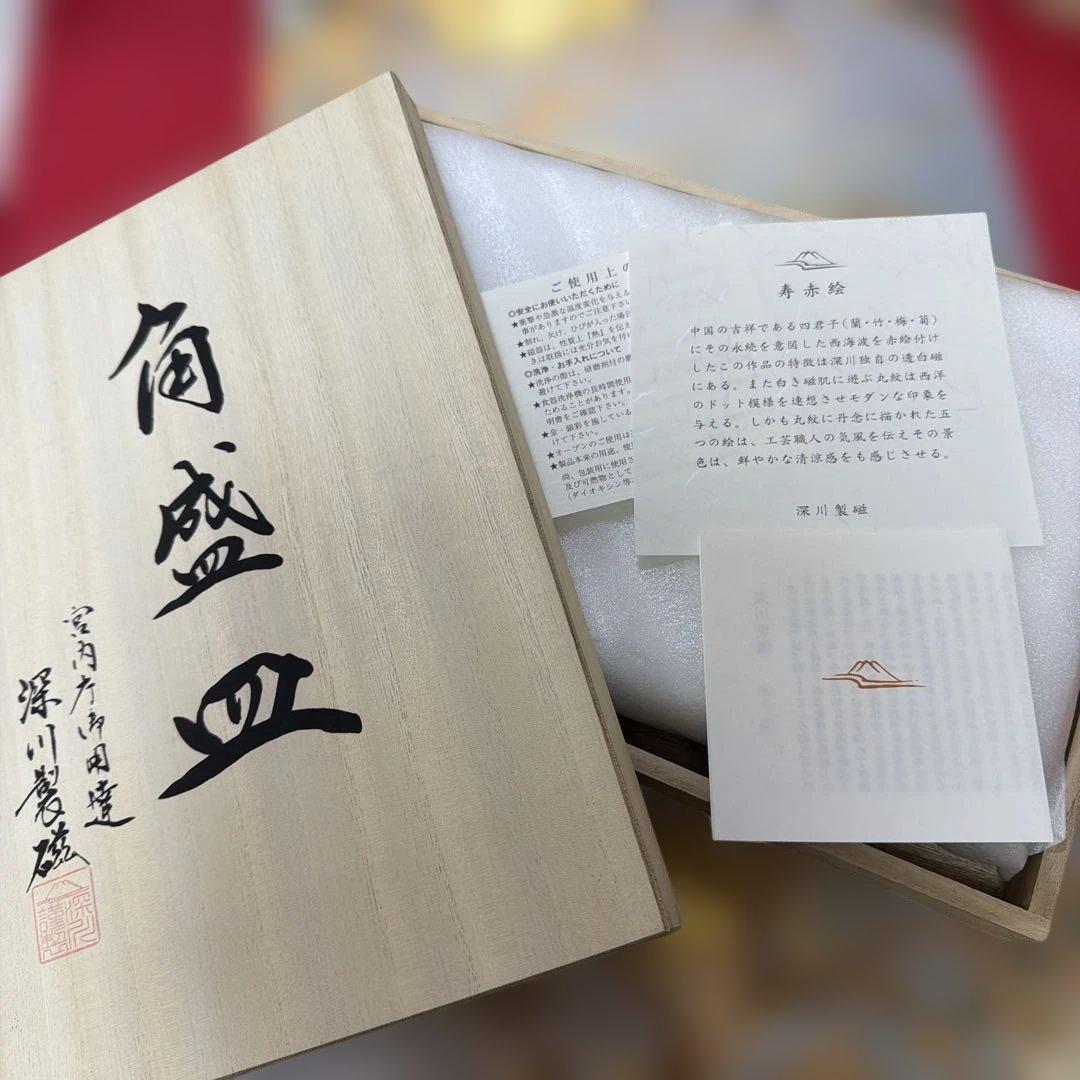 角盛皿
宮内庁御用達
深川製磁
ご使用上の
◎安全にお使いいただくために
★衝撃や急激な温度変化を与える
事がありますのでご注意下さい
★割れ、欠け、ひびが入った場合
★磁器は、性質上「熱」を伝え
きは取扱には充分お気を付け
◎洗浄・お手入れについて
★洗浄の際は、研磨剤付の磨
避けて下さい。
★食器洗浄機の長時間使用
ためることがあります。
明書をご確認下さい。
★金・銀彩を施している
けて下さい。
★オーブンのご使用は
★製品本来の用途、使
尚、包装用に使用さ
及び可燃物として
(ダイオキシン等
寿赤絵
中国の吉祥である四君子(蘭・竹・梅・菊)
にその永続を意図した西海波を赤絵付け
したこの作品の特徴は深川独自の透白磁
にある。また白き磁肌に遊ぶ丸紋は西洋
のドット模様を連想させモダンな印象を
与える。しかも丸紋に丹念に描かれた五
つの絵は、工芸職人の気風を伝えその景
色は、鮮やかな清涼感をも感じさせる。
深川製磁